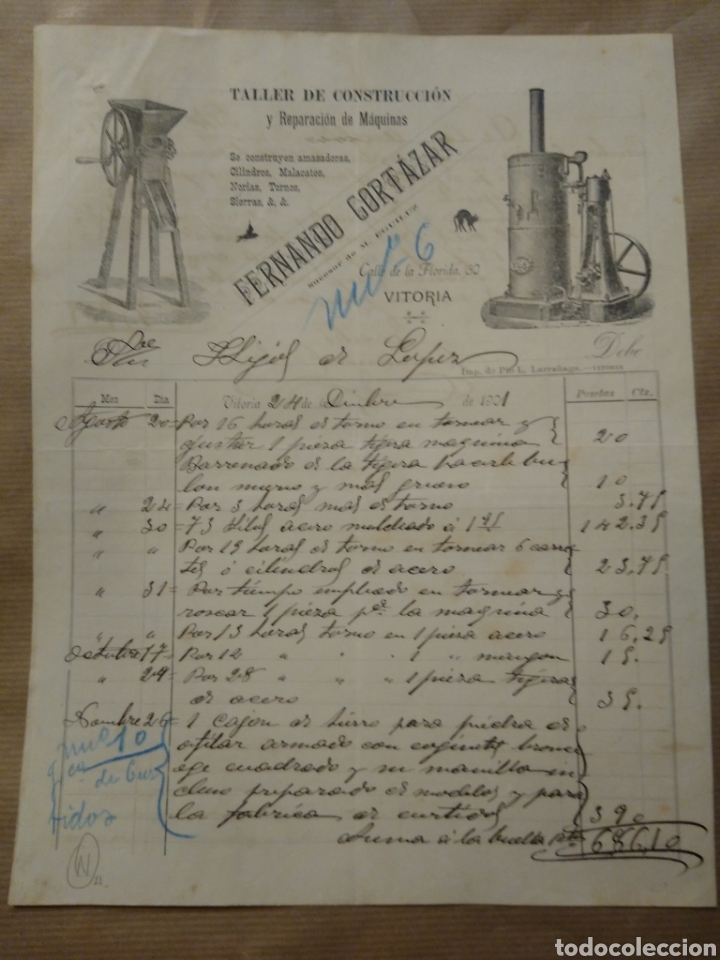 TALLER DE CONSTRUCCIÓN
y Reparación de Máquinas
Se construyen amasadoras,
Cilindros, Malacates,
Norias, Tornos,
Sierras, &. &.
FERNANDO CORTÁZAR
Sucesor de M.
nº 6
Calle de la Florida, 30
VITORIA
Sres Hijos de Lopez Debe
Imp. de Pío L. Larrañaga.—VITORIA
Mes Día Vitoria 24 de Diciembre de 1901 Pesetas Cts.
Agosto 20 = Por 16 horas de torno en tornear y
ajustar 1 pieza tigera maquina 20
Barrenado de la tigera hacerle
mas grueso 10
" 24 = Por 3 horas mas de torno 3.75
" 30 = 73 Kilos acero moldeado á 142.35
" " Por 19 horas de torno en tornear 6
ó cilindros de acero 23.75
" 31 = Por tiempo empleado en tornear y
roscar 1 pieza pª la maquina 30.
" " Por 13 horas torno en 1 pieza acero 16.25
Octubre 17 = Por 12 " " 1 " 15.
" 29 = Por 28 " " " 1 pieza tigeras
de acero 35.
26 = 1 cajon de hierro para piedra de
afilar armado con coginetes bronce
eje cuadrado y su manilla in
cluso preparado de modelos y para
la fabrica de curtidos 390
nº 10
de Cur
tidos
Suma á la buelta Ptas 686,10
todocoleccion